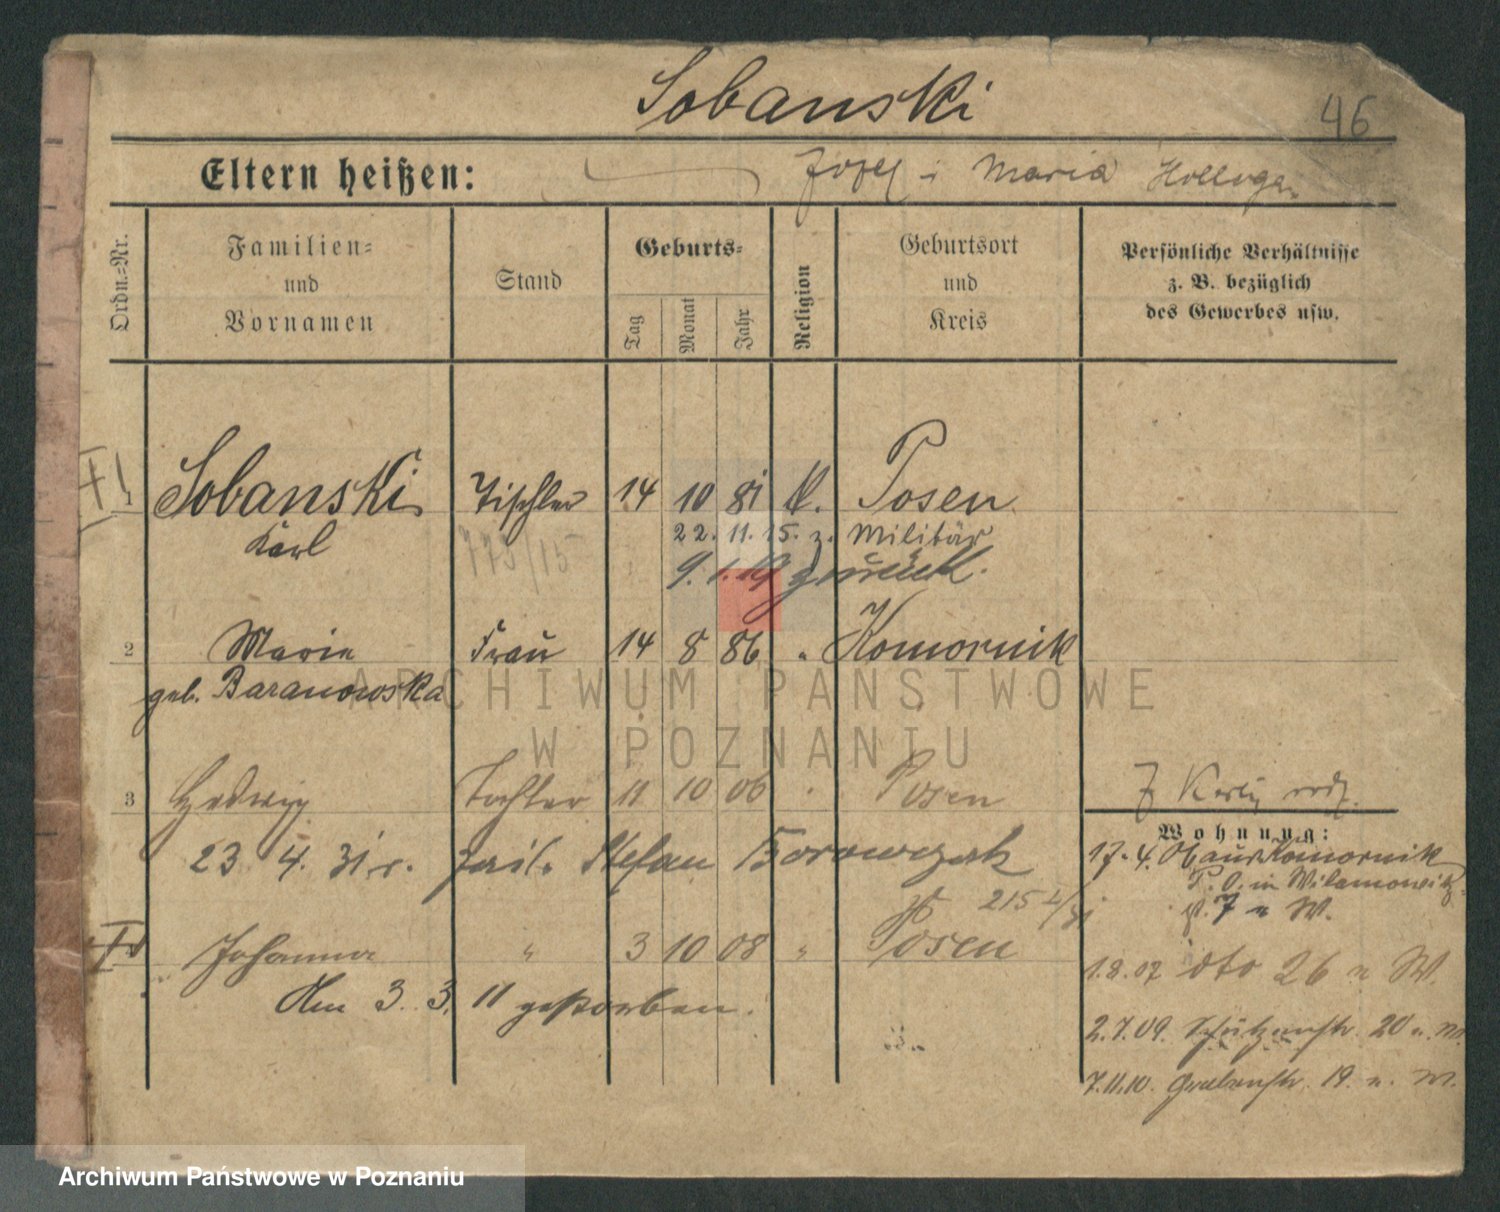 Sobanski
46
Eltern heißen: Józef i Maria
Ordn.=Nr.
Familien= und Vornamen
Stand
Geburts=
Tag Monat Jahr
Religion
Geburtsort und Kreis
Persönliche Verhältnisse
z. B. bezüglich
des Gewerbes usw.
1 Sobanski Tischler 14 10 81 k. Posen
Karl 773/15 22. 11. 15. z. Militär
9. 1. 19 zurück.
2 Marie Frau 14 8 86 " Komornik
geb. Baranowska
3 Hedwig Tochter 11 10 06 " Posen
23. 4. 31 r. Stefan Borowczak
215
Johanna " 3 10 08 " Posen
Am 3. 3. 11 gestorben.
Wohnung:
17. 4. 06 aus Komornik
P. O. in Wilamowitz
7 n W.
1.8.07 dto 26 n W.
2.7.09. Schützenstr. 20 n. W.
7.11.10. Grabenstr. 19. n. W.
ARCHIWUM PAŃSTWOWE
W POZNANIU
Archiwum Państwowe w Poznaniu